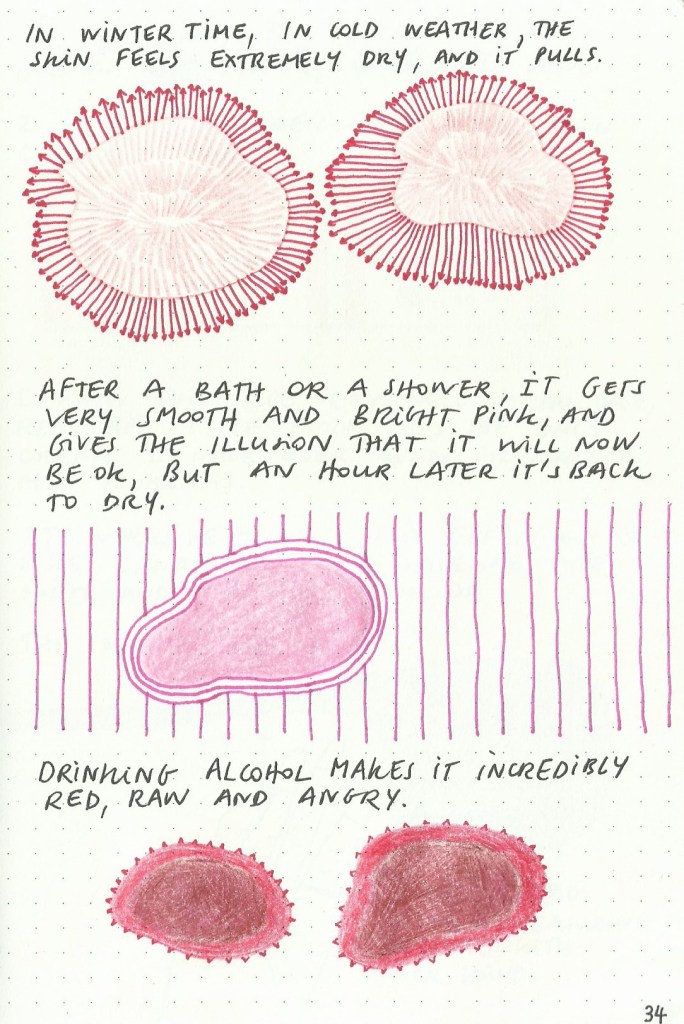 IN WINTER TIME, IN COLD WEATHER, THE
SKIN FEELS EXTREMELY DRY, AND IT PULLS.
AFTER A BATH OR A SHOWER, IT GETS
VERY SMOOTH AND BRIGHT PINK, AND
GIVES THE ILLUSION THAT IT WILL NOW
BE OK, BUT AN HOUR LATER IT'S BACK
TO DRY.
DRINKING ALCOHOL MAKES IT INCREDIBLY
RED, RAW AND ANGRY.
34